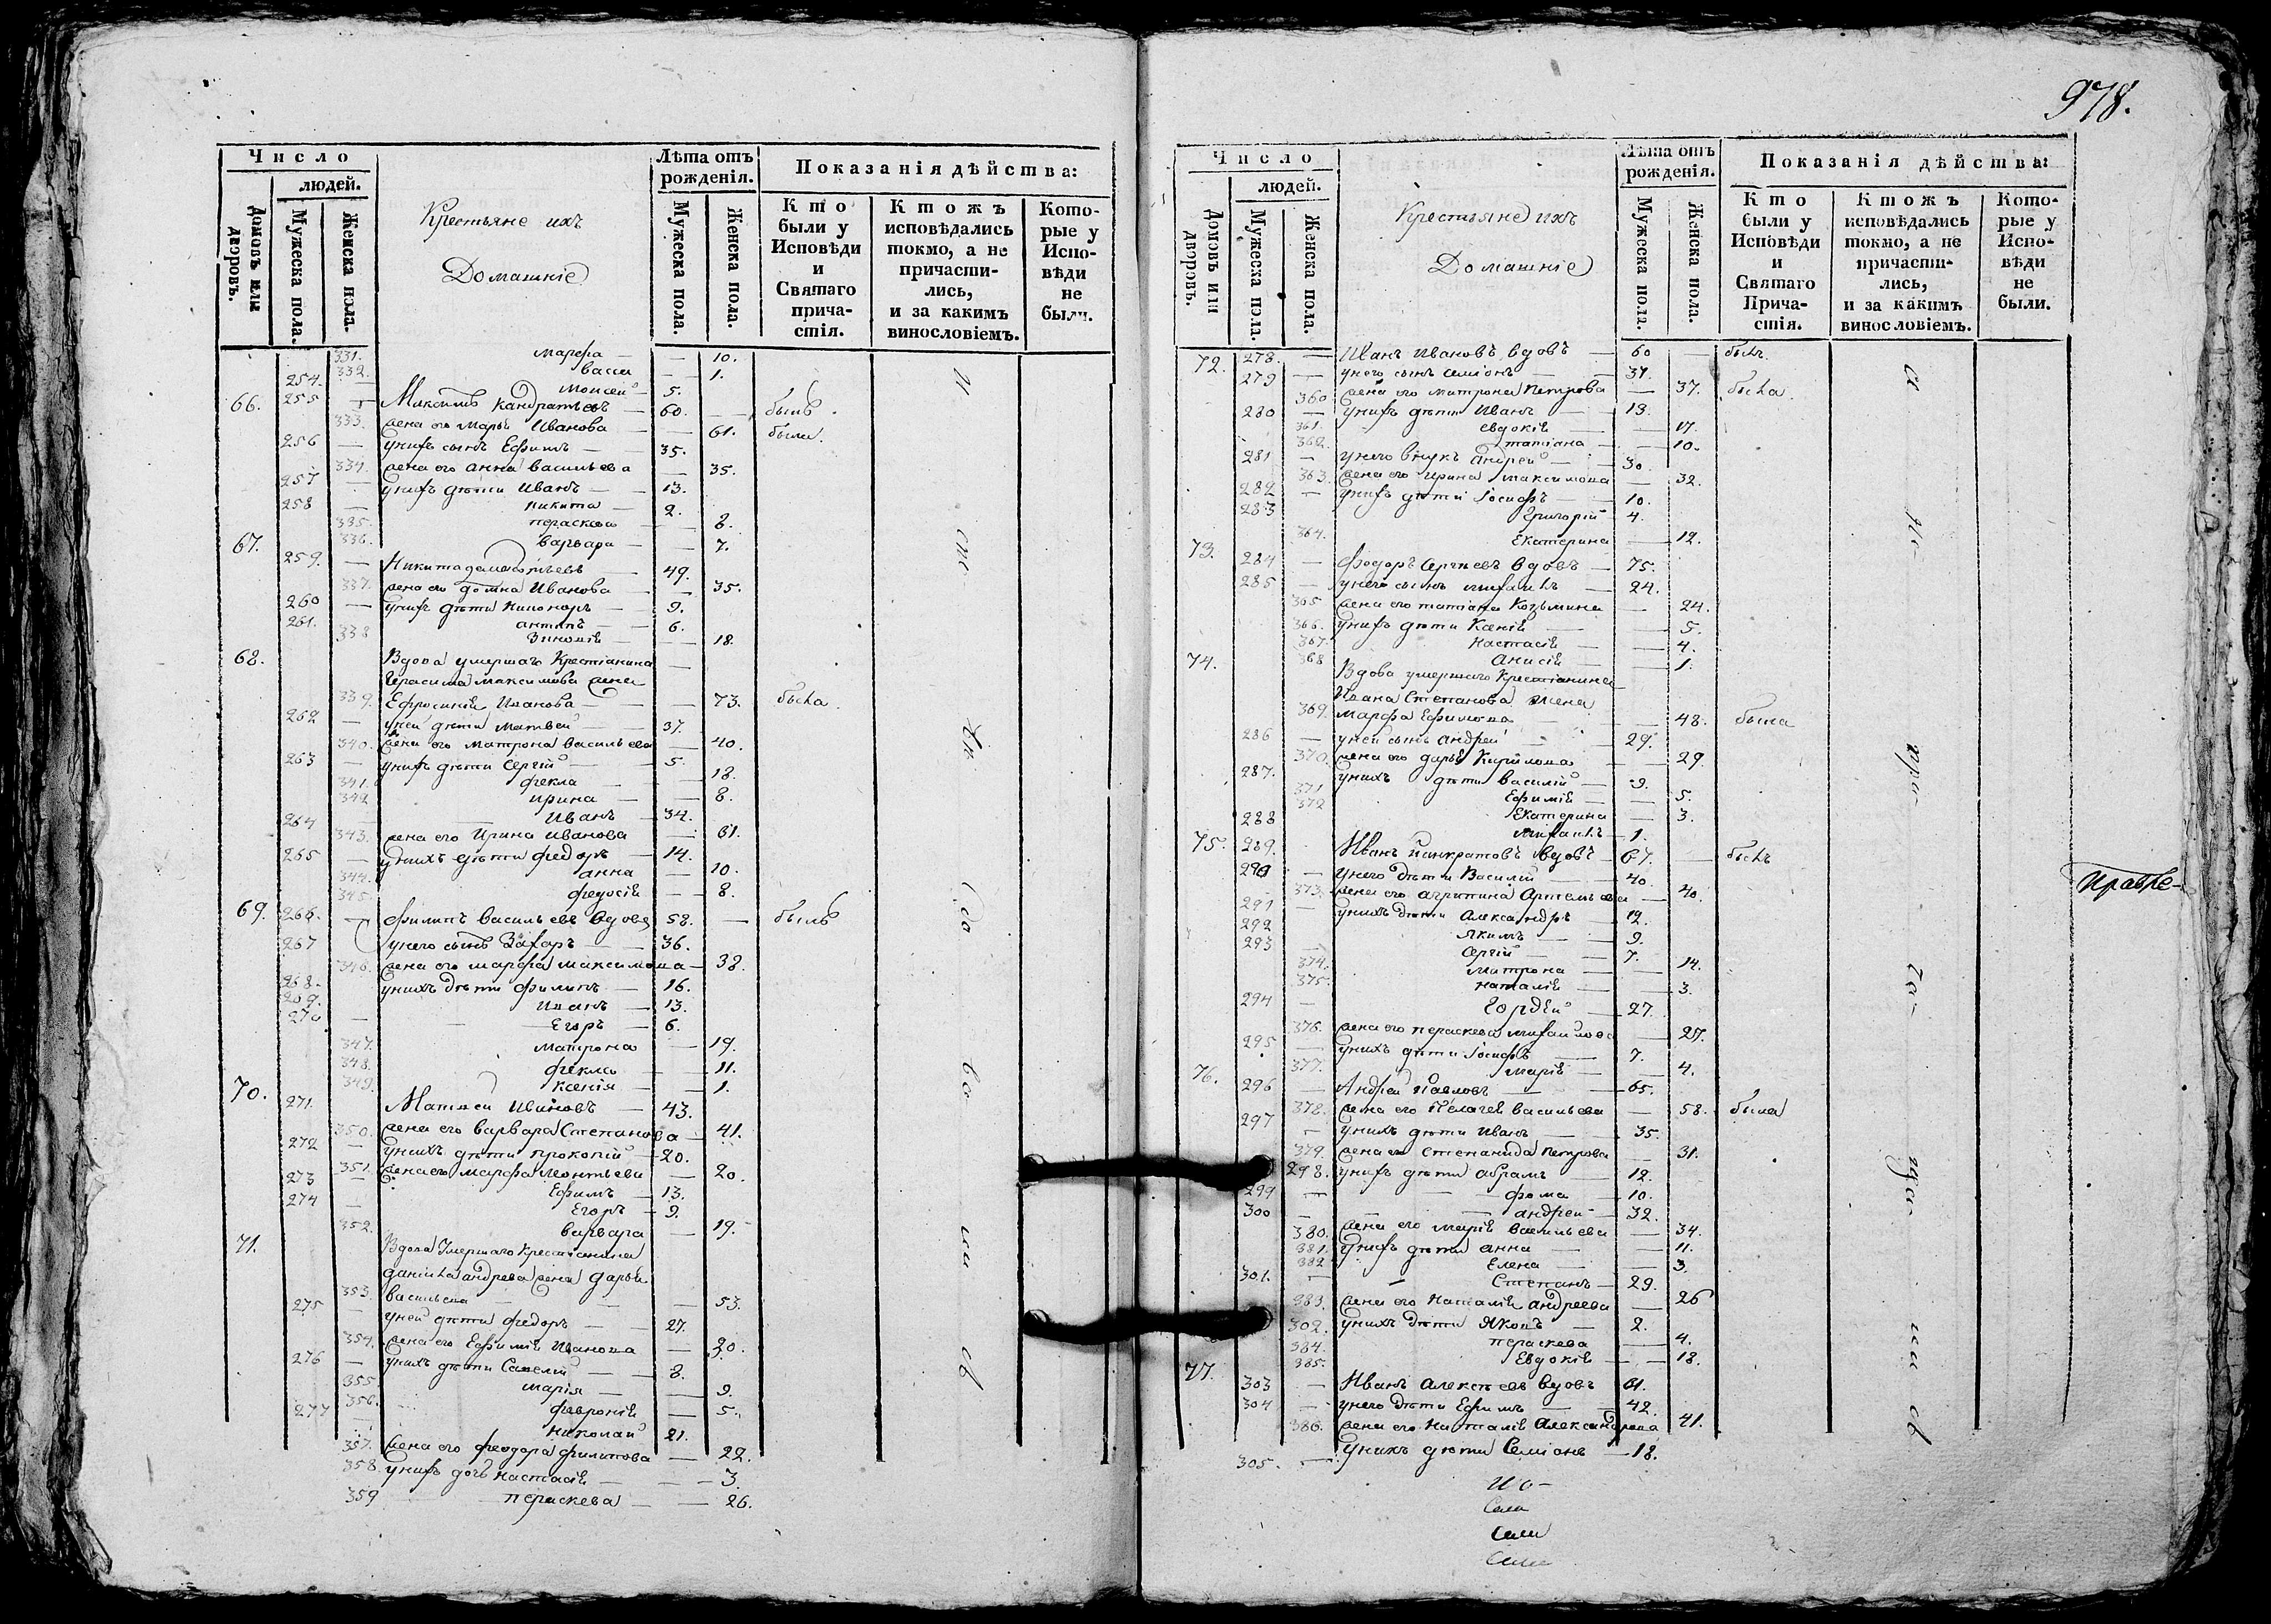 978.
Число
людей.
Домовъ или дворовъ.
Мужеска пола.
Женска пола.
Крестьяне ихъ
Домашніе
Лѣта отъ рожденія.
Мужеска пола.
Женска пола.
Показанія дѣйства:
Кто были у Исповѣди и Святаго причастія.
Ктожъ исповѣдались токмо, а не причастились, и за какимъ винословіемъ.
Которые у Исповѣди не были.
331. Марфа — 10.
332. Васса — 1.
254. Моисей 5.
66. 255 Максимъ Кандратьевъ — 60. былъ.
333. жена его Марья Иванова — 61. были.
256 — у нихъ сынъ Ефимъ — 35.
334. жена его Анна Васильева — 35.
257 — у нихъ дѣти Иванъ — 13.
258 — Никита — 2.
335. Пераскева — 8.
336. Варвара — 7.
67. 259. — Никита — 49.
337. жена его Домна Иванова — 35.
260 — у нихъ дѣти — 9.
261. Антипъ — 6.
338 — 18.
68. Вдова умершаго Крестіанина
Герасима Максимова жена
339. Ефросинія Иванова — 73. была.
262 — у ней дѣти Матвей — 37.
340. жена его Матрона Васильева — 40.
263 — у нихъ дѣти Сергій — 5.
341. Фекла — 18.
342 Ирина — 8.
264 — Иванъ — 34.
343. жена его Ирина Иванова — 31.
265 — у нихъ дѣти Федоръ — 14.
344. Анна — 10.
345. Федосія — 8.
69. 266. — Филипъ Васильевъ вдовъ 58. — былъ
267 у него сынъ Захаръ — 36.
346. жена его Марфа Максимова — 38.
268. у нихъ дѣти Филипъ — 16.
269. Иванъ — 13.
270 — Егоръ — 6.
347. Матрона — 19.
348. Фекла — 11.
349. Ксенія — 1.
70. 271. Матвей Ивановъ — 43.
350. жена его Варвара Степанова — 41.
272 — у нихъ дѣти Прокопій — 20.
351. жена его Марфа Леонтьева — 20.
273 — Ефимъ — 13.
274 — Егоръ — 9.
352. Варвара — 19.
71. Вдова Умершаго Крестіанина
Данила Андреева жена Дарья
353. Васильева — 53.
275 — у ней дѣти Федоръ — 27.
354. жена его Ефимія Иванова — 30.
276 — у нихъ дѣти Савелій — 8.
355 Марія — 9.
356. Февронія — 5.
277 Николай 21.
357. жена его Феодора Филипова — 22.
358. у нихъ дочь Настасія — 3.
359 Пераскева — 26.
Число
людей.
Домовъ или дворовъ.
Мужеска пола.
Женска пола.
Крестьяне ихъ
Домашніе
Лѣта отъ рожденія.
Мужеска пола.
Женска пола.
Показанія дѣйства:
Кто были у Исповѣди и Святаго Причастія.
Ктожъ исповѣдались токмо, а не причастились, и за какимъ винословіемъ.
Которые у Исповѣди не были.
72. 278. — Иванъ Ивановъ вдовъ — 60 — былъ.
279 — у него сынъ Семіонъ — 37.
360 жена его Матрона Петрова — 37. была.
280 — у нихъ дѣти Иванъ — 13.
361. Евдокія — 17.
362. Татіана — 10.
281 — у него внукъ Андрей — 30.
363. жена его Ирина Максимова — 32.
282 — у нихъ дѣти Іосифъ — 10.
283 Григорій 4.
364. Екатерина — 12.
73. 284 — Федоръ Сергеевъ вдовъ — 75.
285 — у него сынъ Михаилъ — 24.
365 жена его Татіана Козьмина — 24.
366. у нихъ дѣти Ксенія — 5.
367. Настасія — 4.
368 Анисія — 1.
74. Вдова умершаго Крестіанина
Ивана Степанова Жена
369. Марфа Ефимова — 48. была
286 — у ней сынъ Андрей — 29.
370. жена его Дарья Кирилова — 29
287. у нихъ дѣти Василій — 9.
371 Ефимія — 5.
372 Екатерина — 3.
288 Михаилъ — 1.
75. 289. Иванъ Панкратовъ вдовъ 67. — былъ
290 — у него дѣти Василій — 40.
373. жена его Агрипина Артемьева — 40.
291 — у нихъ дѣти Александръ — 12.
292 Якимъ — 9.
293 Сергій — 7.
374. Матрона — 14.
375. Наталія — 3.
294 — Гордѣй — 27.
376. жена его Пераскева Михайлова — 27.
295 — у нихъ дѣти Іосифъ — 7.
377. Марія — 4.
76. 296 — Андрей Павловъ — 65.
378. жена его Пелагея Васильева — 58. была
297 — у нихъ дѣти Иванъ — 35.
379. жена его Степанида Петрова — 31.
298. у нихъ дѣти Абрамъ — 12.
299 — Фома — 10.
300 — Андрей — 32.
380. жена его Марія Васильева — 34.
381. у нихъ дѣти Анна — 11.
382 Елена — 3.
301. — Степанъ — 29.
383. жена его Наталія Андреева — 26
302. у нихъ дѣти Яковъ — 2.
384. Пераскева — 4.
385. Евдокія — 18.
77. 303 — Иванъ Алексѣевъ вдовъ 61.
304 — у него дѣти Ефимъ — 42.
386. жена его Наталія Александрова 41.
305. — у нихъ дѣти Семіонъ — 18.